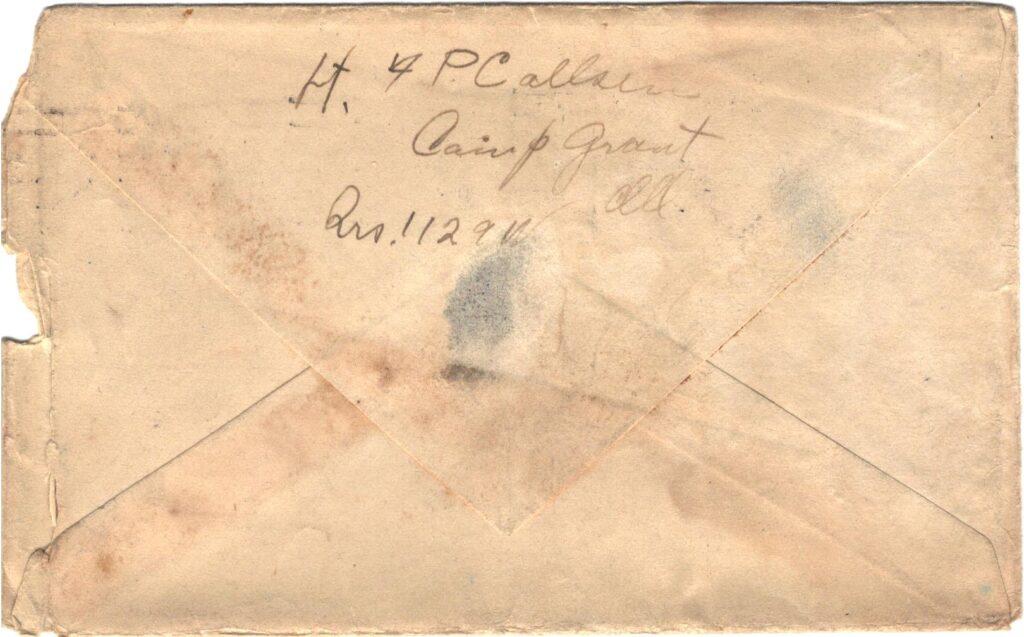 H. & P. Callsen
Camp Grant
Ill.
Qrs. 1129